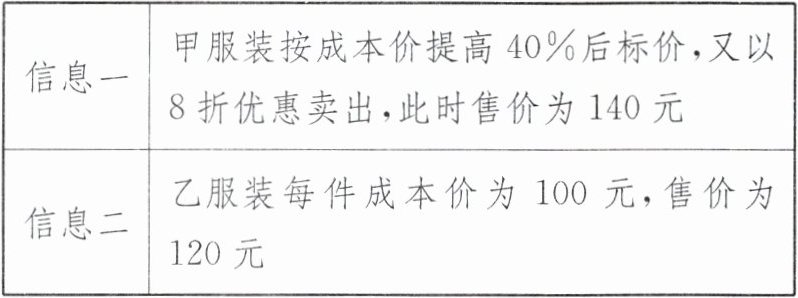 信息一
甲服装按成本价提高 40%后标价,又以
8 折优惠卖出,此时售价为 140 元
信息二
乙服装每件成本价为 100 元,售价为
120 元